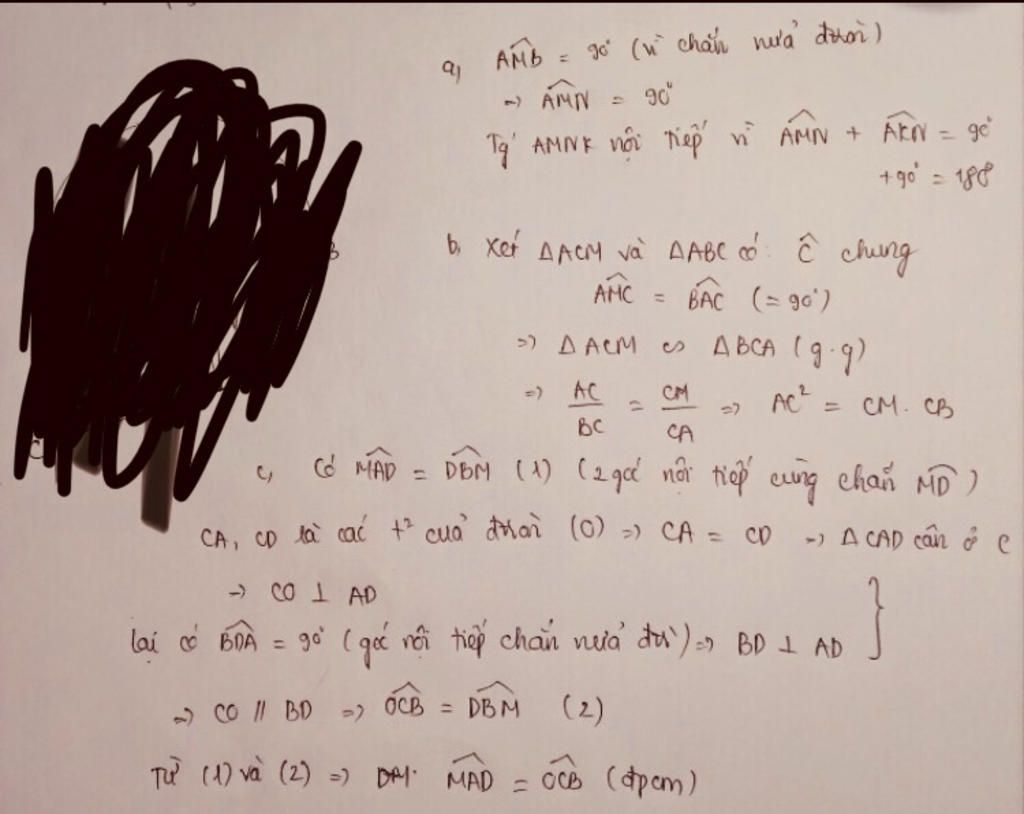 a, AM̂B = 90° (vì chắn nửa đtròn)
=> AM̂N = 90°
Tg' AMNK nội tiếp vì AM̂N + AK̂N = 90°
+90° = 180
B
b, Xét ΔACM và ΔABC có: Ĉ chung
AM̂C = BÂC (=90°)
=> ΔACM ∽ ΔBCA (g.g)
=> AC/BC = CM/CA => AC² = CM. CB
C
c, Có MÂD = DB̂M (1) (2 góc nội tiếp cùng chắn MD)
CA, CD là các t² của đtròn (O) => CA = CD => ΔCAD cân ở C
=> CO ⊥ AD
lại có BD̂A = 90° (góc nội tiếp chắn nửa đtr) => BD ⊥ AD
=> CO // BD => OĈB = DB̂M (2)
Từ (1) và (2) => MÂD = OĈB (đpcm)